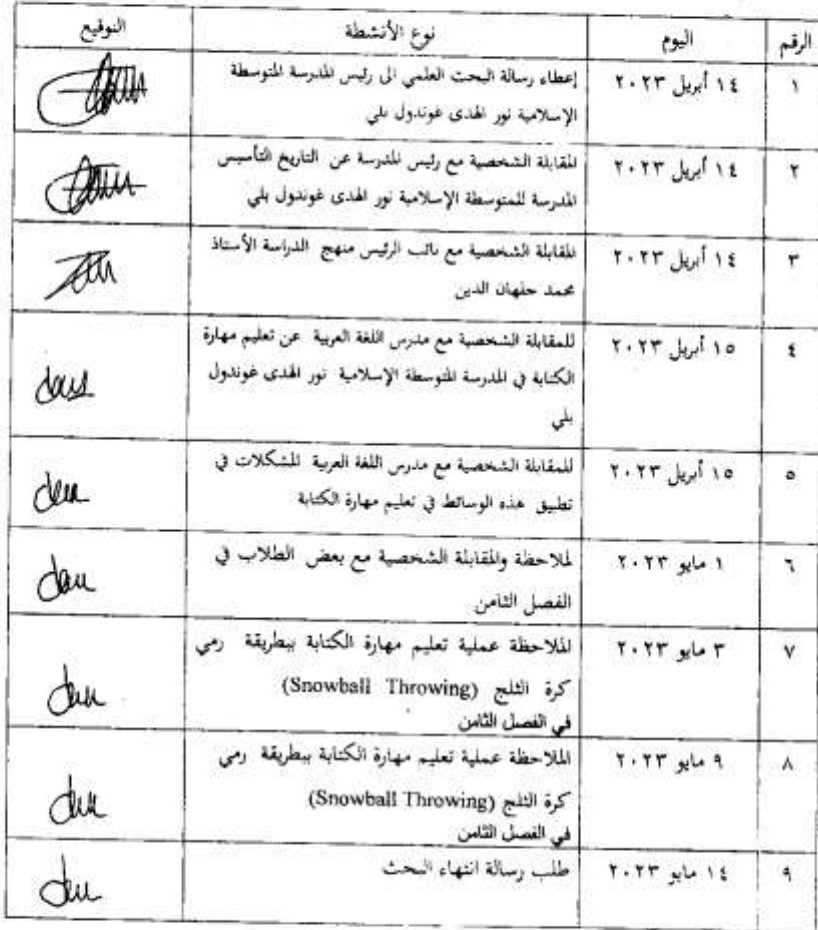 الرقم اليوم نوع الأنشطة التوقيع
١ ١٤ أبريل ٢٠٢٣ إعطاء رسالة البحث العلمي الى رئيس المدرسة المتوسطة
الإسلامية نور الهدى غوندول بلي
٢ ١٤ أبريل ٢٠٢٣ المقابلة الشخصية مع رئيس المدرسة عن التاريخ التأسيس
المدرسة المتوسطة الإسلامية نور الهدى غوندول بلي
٣ ١٤ أبريل ٢٠٢٣ المقابلة الشخصية مع نائب الرئيس منهج الدراسة الأستاذ
محمد حلهان الدين
٤ ١٥ أبريل ٢٠٢٣ المقابلة الشخصية مع مدرس اللغة العربية عن تعليم مهارة
الكتابة في المدرسة المتوسطة الإسلامية نور الهدى غوندول
بلي
٥ ١٥ أبريل ٢٠٢٣ المقابلة الشخصية مع مدرس اللغة العربية المشكلات في
تطبيق هذه الوسائط في تعليم مهارة الكتابة
٦ ١ مايو ٢٠٢٣ لملاحظة والمقابلة الشخصية مع بعض الطلاب في
الفصل الثامن
٧ ٣ مايو ٢٠٢٣ الملاحظة عملية تعليم مهارة الكتابة ببطريقة رمي
كرة الثلج (Snowball Throwing)
في الفصل الثامن
٨ ٩ مايو ٢٠٢٣ الملاحظة عملية تعليم مهارة الكتابة ببطريقة رمي
كرة الثلج (Snowball Throwing)
في الفصل الثامن
٩ ١٤ مايو ٢٠٢٣ طلب رسالة انتهاء البحث